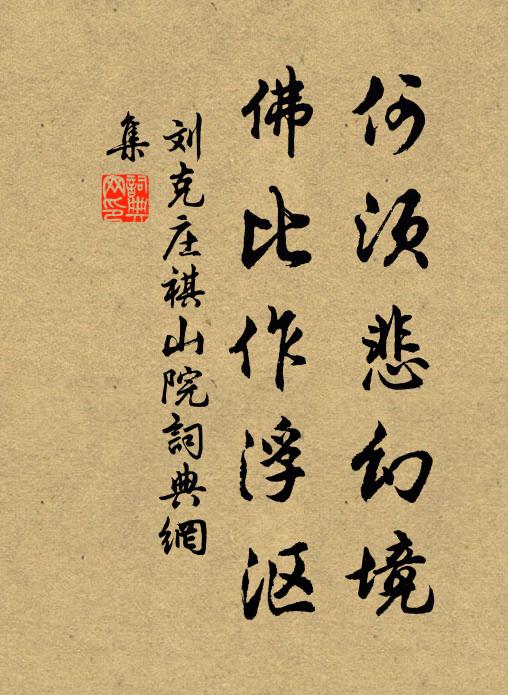 何须悲幻境
佛比作浮沤
刘克庄祺山院詞典網
集
詞典網印